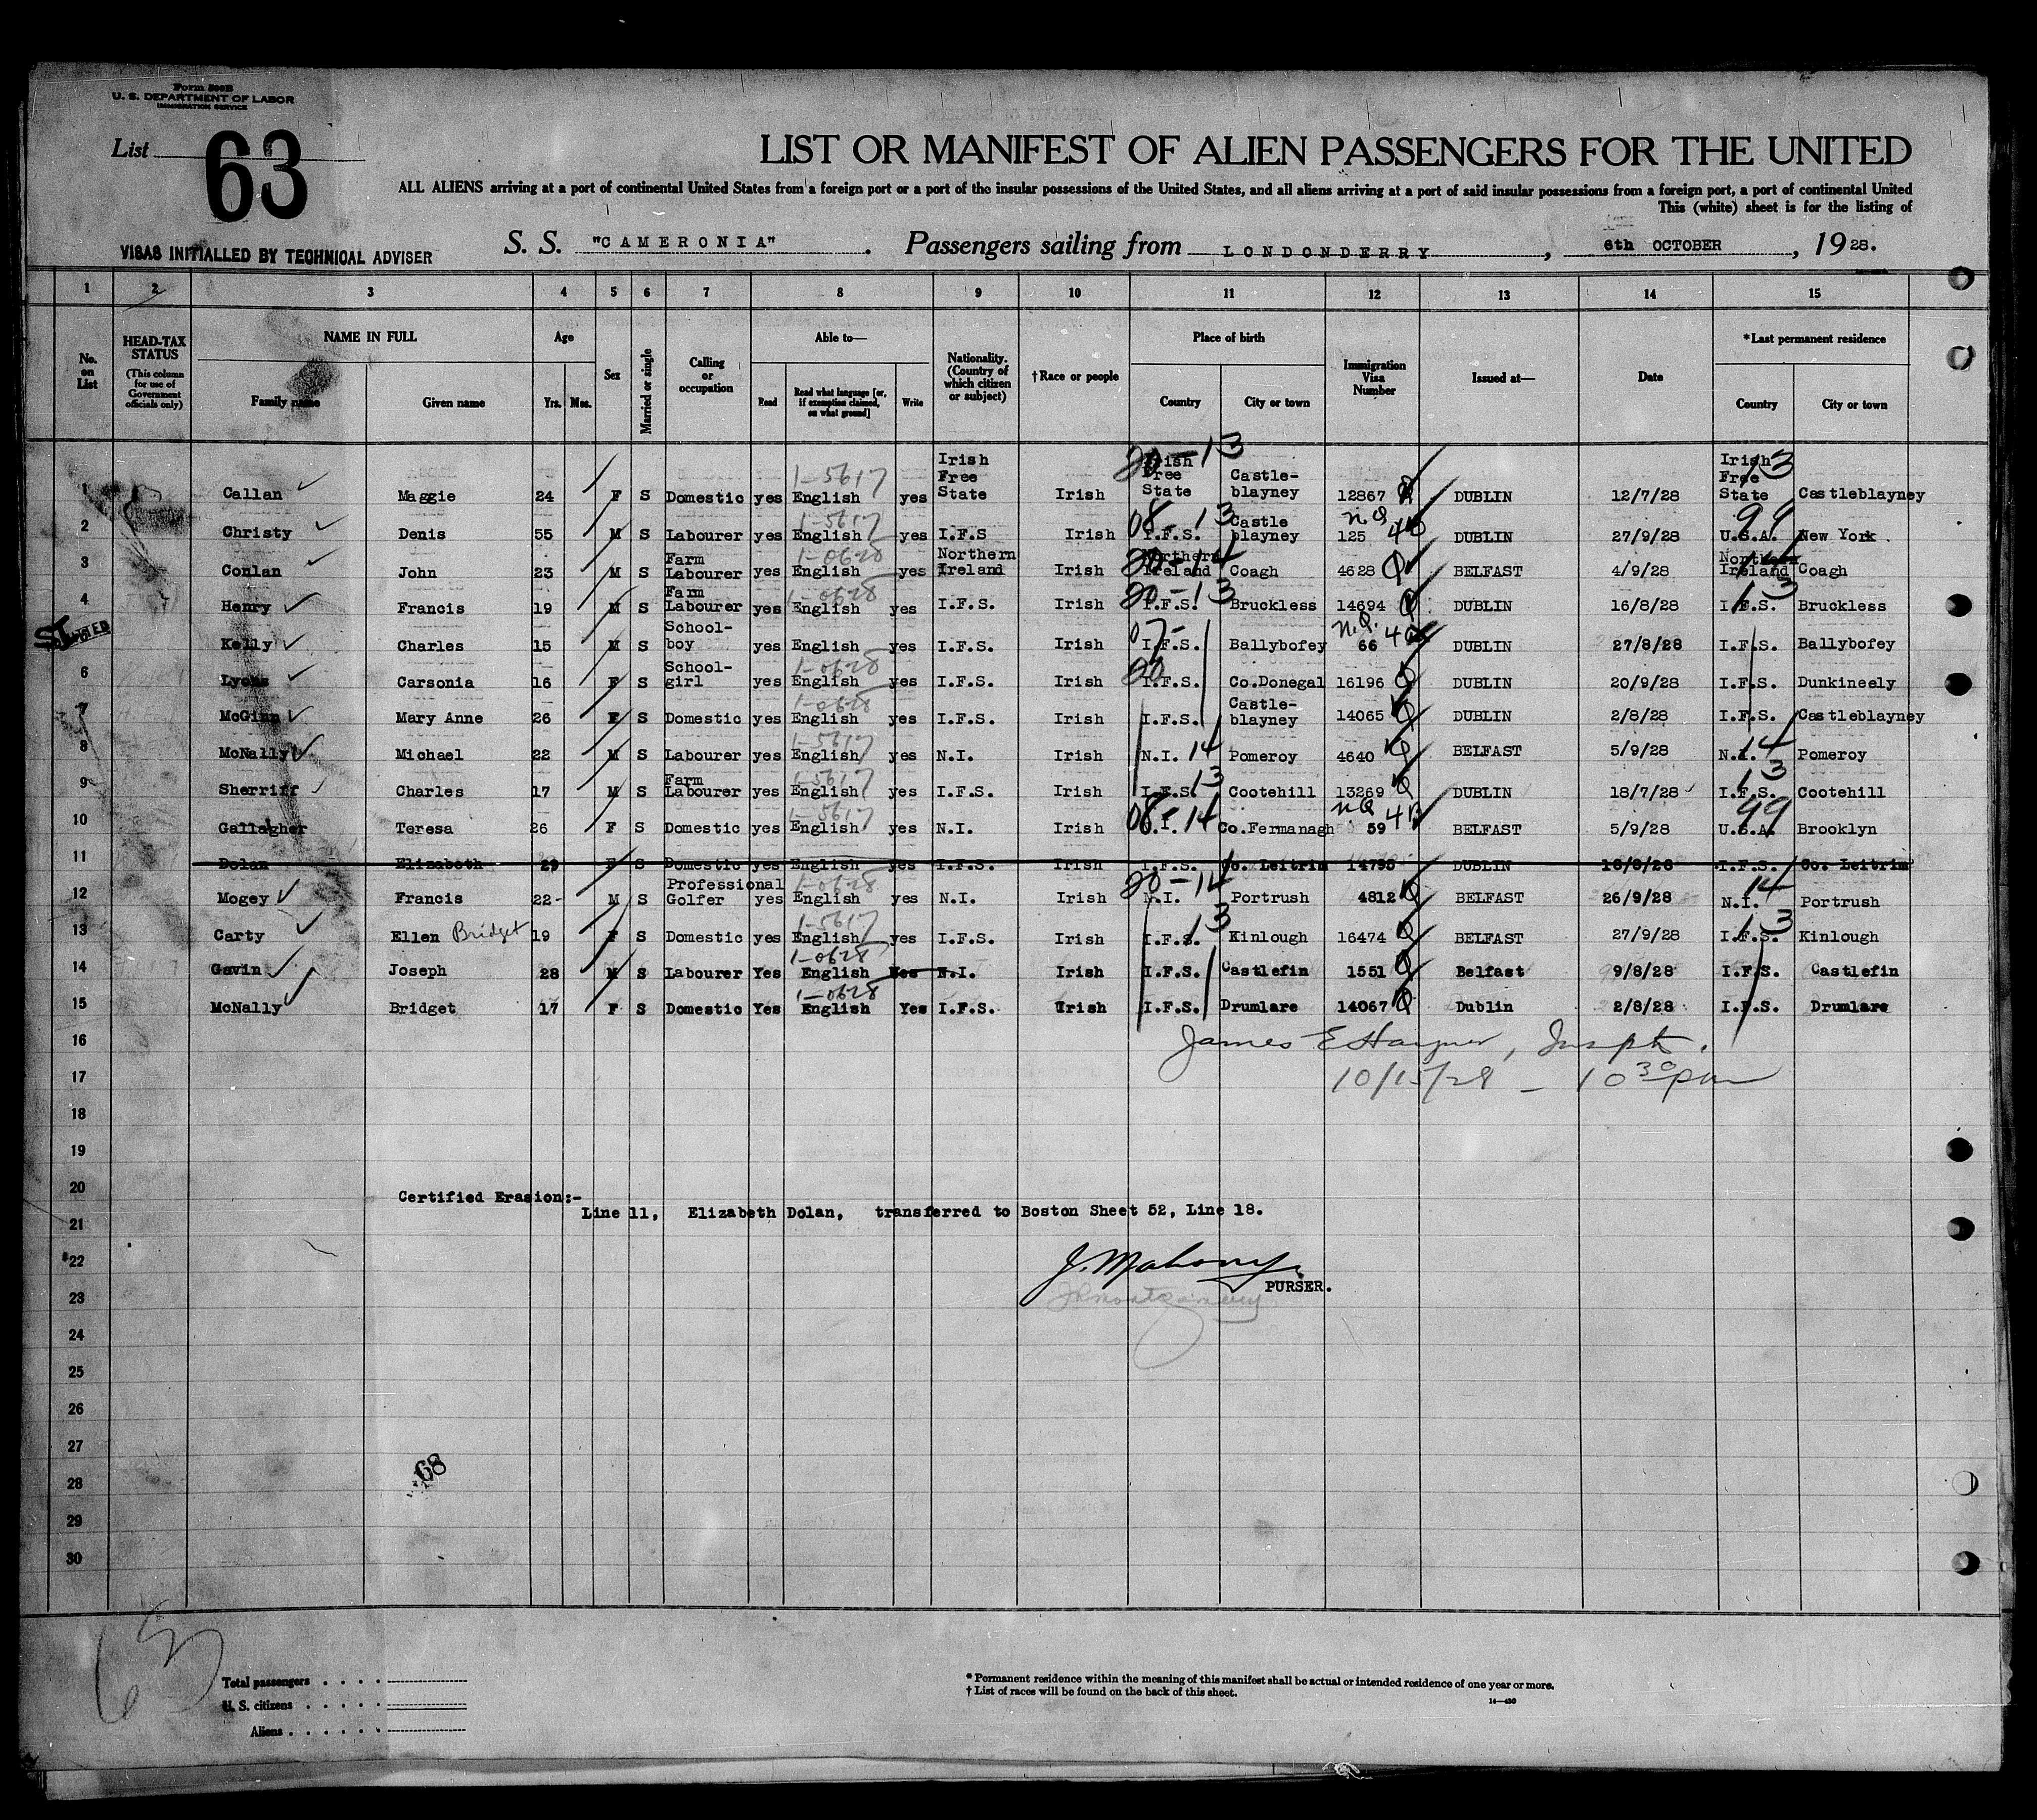 Form 500B
U. S. DEPARTMENT OF LABOR
IMMIGRATION SERVICE
List 63
LIST OR MANIFEST OF ALIEN PASSENGERS FOR THE UNITED
ALL ALIENS arriving at a port of continental United States from a foreign port or a port of the insular possessions of the United States, and all aliens arriving at a port of said insular possessions from a foreign port, a port of continental United
This (white) sheet is for the listing of
VISAS INITIALLED BY TECHNICAL ADVISER
S. S. "CAMERONIA". Passengers sailing from LONDONDERRY, 6th OCTOBER, 1928.
1 2 3 4 5 6 7 8 9 10 11 12 13 14 15
No. on List
HEAD-TAX STATUS (This column for use of Government officials only)
NAME IN FULL Family name Given name
Age Yrs. Mos.
Sex
Married or single
Calling or occupation
Able to— Read Read what language [or, if exemption claimed, on what ground] Write
Nationality. (Country of which citizen or subject)
†Race or people
Place of birth Country City or town
Immigration Visa Number
Issued at—
Date
*Last permanent residence Country City or town
1 Callan Maggie 24 F S Domestic yes English 1-5617 yes Irish Free State Irish Irish Free State 20-13 Castle-blayney 12867 DUBLIN 12/7/28 Irish Free State 13 Castleblayney
2 Christy Denis 55 M S Labourer yes English 1-5617 yes I.F.S Irish I.F.S. 08-13 Castle blayney 125 DUBLIN 27/9/28 U.S.A. 99 New York
3 Conlan John 23 M S Farm Labourer yes English 1-0628 yes Northern Ireland Irish Northern Ireland 20-14 Coagh 4628 BELFAST 4/9/28 Northern Ireland 14 Coagh
4 Henry Francis 19 M S Farm Labourer yes English 1-0628 yes I.F.S. Irish I.F.S. 20-13 Bruckless 14694 DUBLIN 16/8/28 I.F.S. 13 Bruckless
Kelly Charles 15 M S School-boy yes English yes I.F.S. Irish I.F.S. 07- Ballybofey 66 DUBLIN 27/8/28 I.F.S. Ballybofey
6 Lyons Carsonia 16 F S School-girl yes English 1-0628 yes I.F.S. Irish I.F.S. 20 Co.Donegal 16196 DUBLIN 20/9/28 I.F.S. Dunkineely
7 McGinn Mary Anne 26 F S Domestic yes English 1-0628 yes I.F.S. Irish I.F.S. Castle-blayney 14065 DUBLIN 2/8/28 I.F.S. Castleblayney
8 McNally Michael 22 M S Labourer yes English 1-5617 yes N.I. Irish N.I. 14 Pomeroy 4640 BELFAST 5/9/28 N.I. 14 Pomeroy
9 Sherriff Charles 17 M S Farm Labourer yes English 1-5617 yes I.F.S. Irish I.F.S. 13 Cootehill 13269 DUBLIN 18/7/28 I.F.S. 13 Cootehill
10 Gallagher Teresa 26 F S Domestic yes English 1-5617 yes N.I. Irish N.I. 08-14 Co.Fermanagh 59 BELFAST 5/9/28 U.S.A. 99 Brooklyn
11 Dolan Elizabeth 29 F S Domestic yes English yes I.F.S. Irish I.F.S. Co. Leitrim 14795 DUBLIN 18/8/28 I.F.S. Co. Leitrim
12 Mogey Francis 22 M S Professional Golfer yes English 1-0628 yes N.I. Irish N.I. 20-14 Portrush 4812 BELFAST 26/9/28 N.I. 14 Portrush
13 Carty Ellen Bridget 19 F S Domestic yes English 1-5617 yes I.F.S. Irish I.F.S. 13 Kinlough 16474 BELFAST 27/9/28 I.F.S. 13 Kinlough
14 Gavin Joseph 28 M S Labourer Yes English 1-0628 Yes N.I. Irish I.F.S. Castlefin 1551 Belfast 9/8/28 I.F.S. Castlefin
15 McNally Bridget 17 F S Domestic Yes English 1-0628 Yes I.F.S. Irish I.F.S. Drumlare 14067 Dublin 2/8/28 I.F.S. Drumlare
16
17 10/15/28 – 10 30 pm
18
19
20 Certified Erasion:-
21 Line 11, Elizabeth Dolan, transferred to Boston Sheet 52, Line 18.
22 J. Mahony
PURSER.
23
24
25
26
27
28 68
29
30
63
Total passengers
U. S. citizens
Aliens
* Permanent residence within the meaning of this manifest shall be actual or intended residence of one year or more.
† List of races will be found on the back of this sheet.
14—430